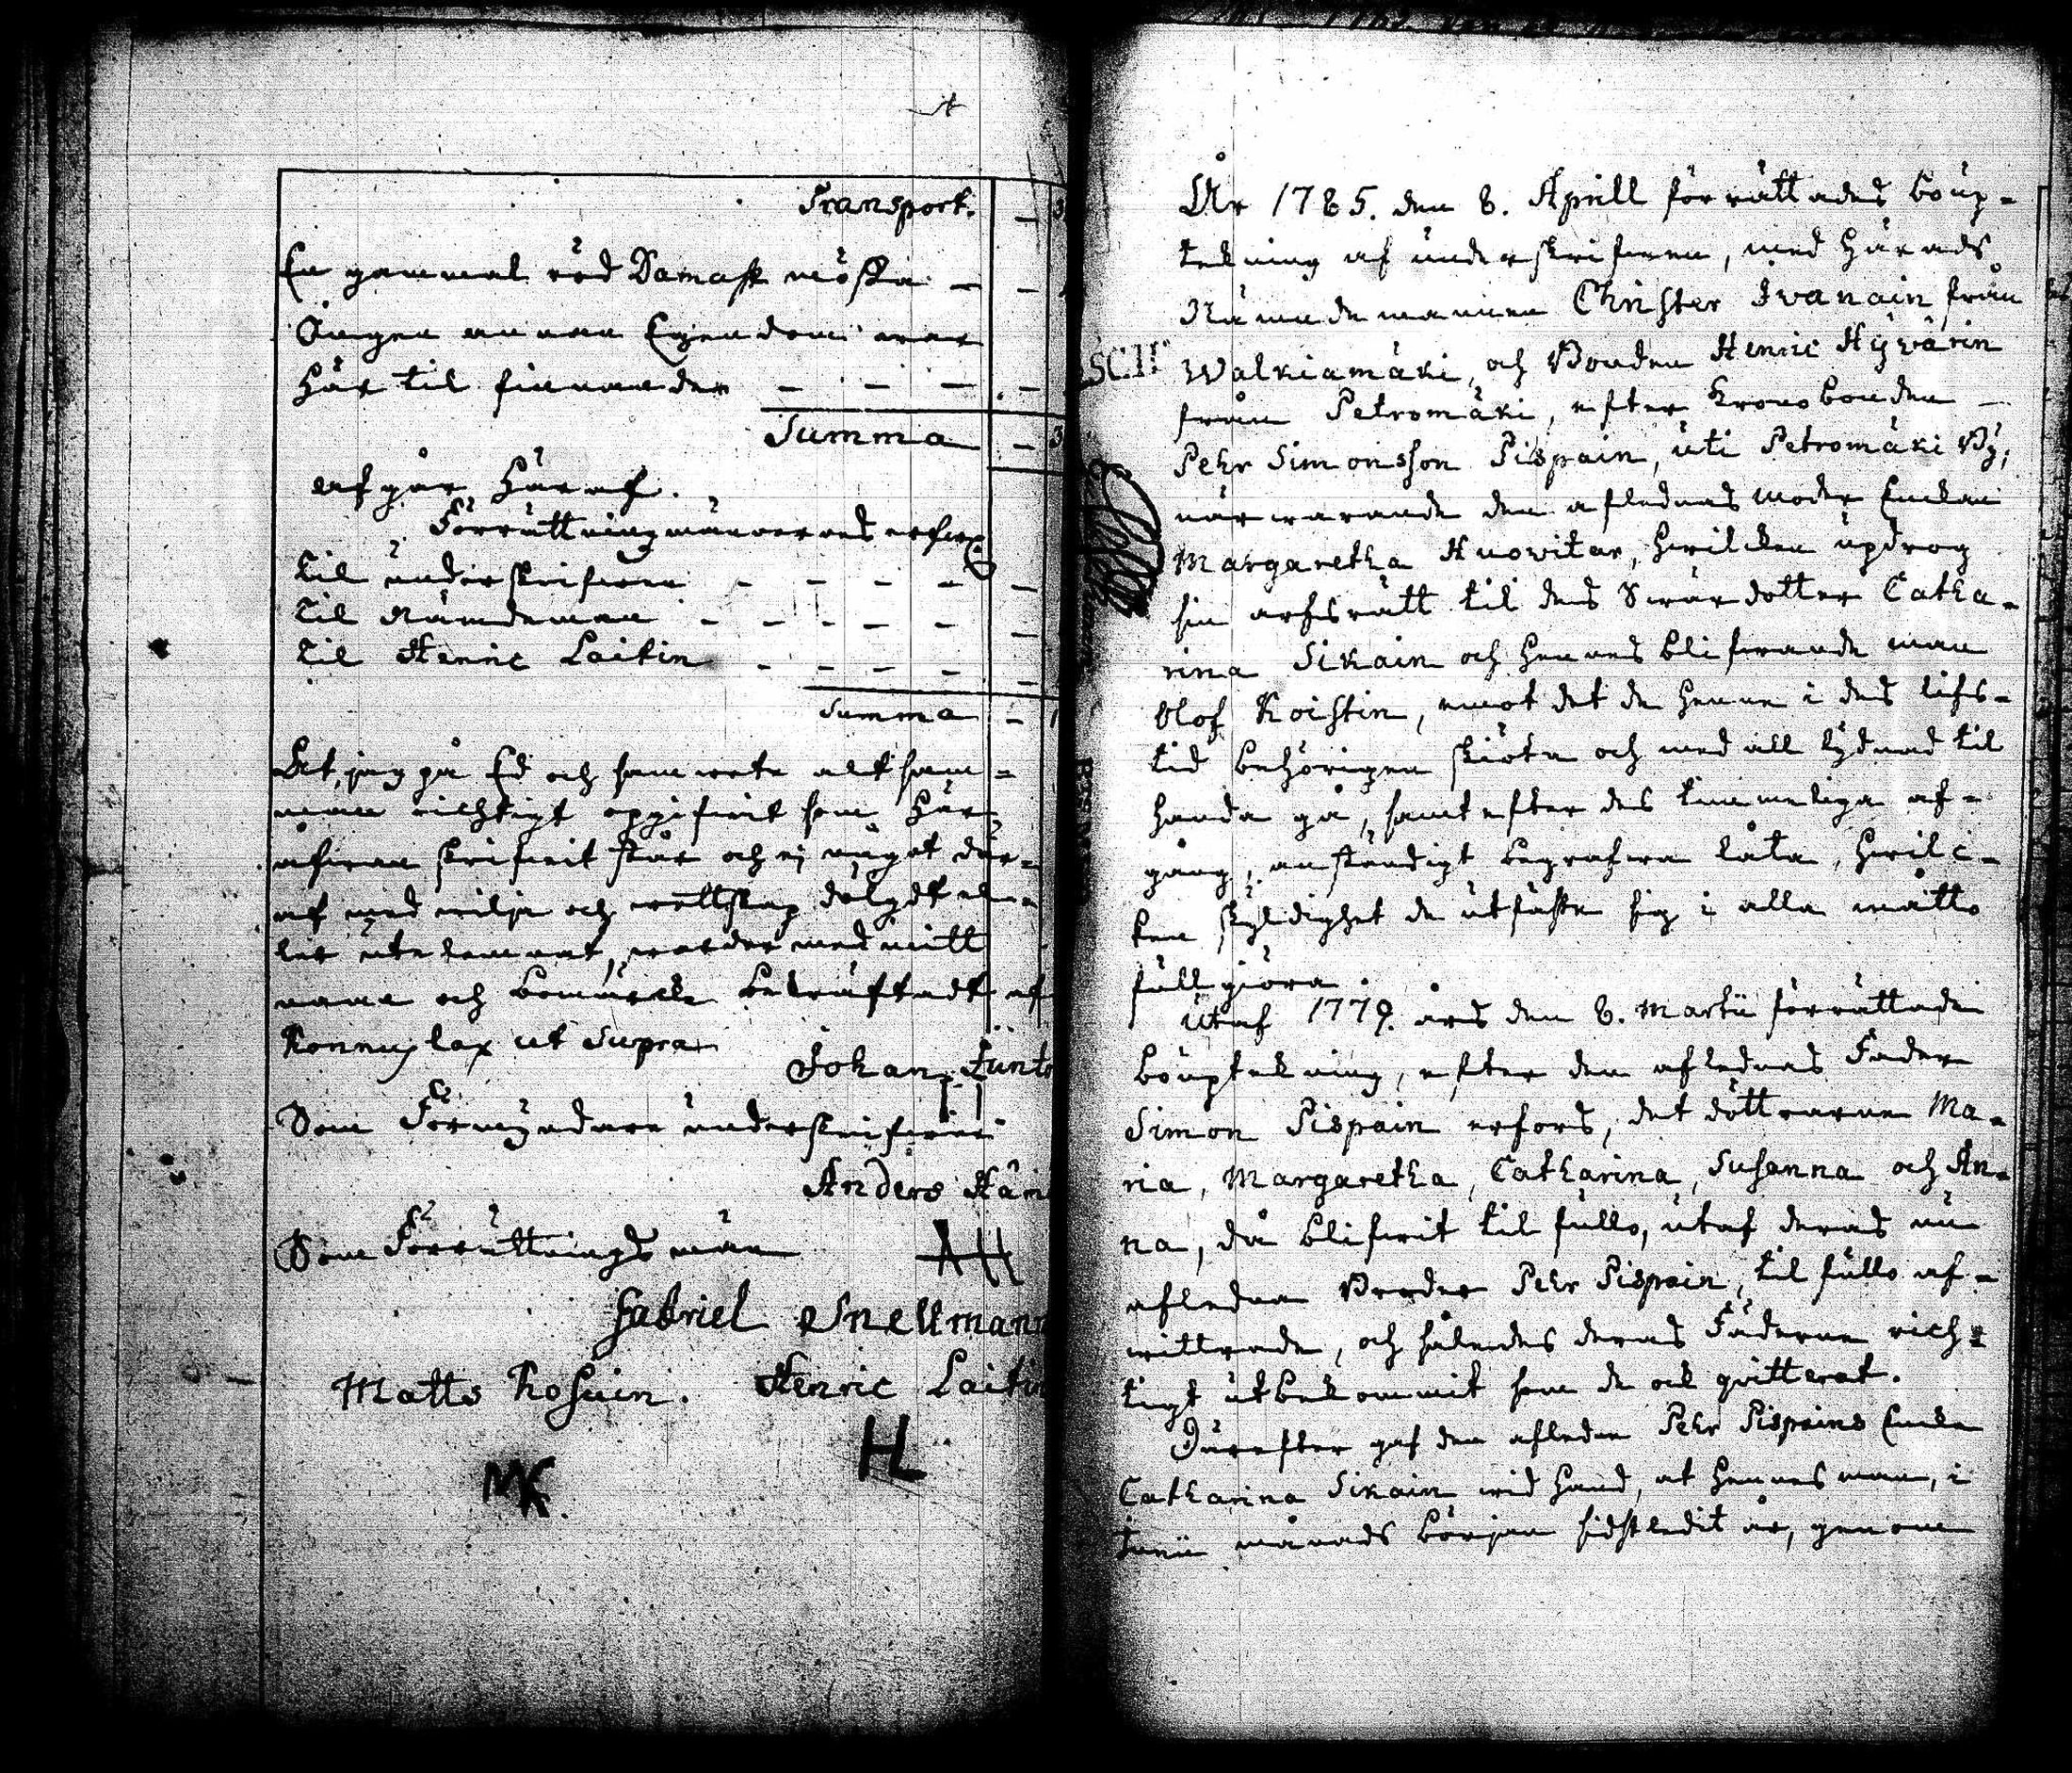 Transport.
En gammal röd Damask mössa
Ingen annan Egendom war
här til finnandes
Summa
afgår häraf.
Förrättningsmännernes arfwode
til underskrifwen
til Nämdeman
til Henric Laitin
Summa
At jag på Ed och samwete alt sam-
man richtigt opgifwit som här
ofwan skrifwit står och ej något där-
af med wilja och wettskap döljdt el-
ler utelemnat, warder med mitt
namn och bomärke bekräftadt af
Konnuslax ut Supra
Johan
Som Förmyndare underskrifwer
Anders
Som Förrättningsmän
AH
Gabriel Snellmann
Matts Kosuin. Henric Laitin
MK. HL
År 1785. den 8. Aprill förrättades boup-
tekning af underskrifwen, med härads
Nämndemannen Christer Iwanain från
Walkiamäki, och Bonden Henric Hywärin
från Petromäki, efter Kronobonden
Pehr Simonsson Pispain, uti Petromäki By;
närwarande den aflednas moder Enkan
Margaretha Huowitar, hwilcken updrog
sin arfsrätt til dess Swärdotter Catha-
rina Sikain och hennes blifwande man
Olof Koistin, emot det de henne i dess lifs-
tid behörigen skiöta och med all lydnad til
handa gå, samt efter des timmeliga af-
gång, anständigt begrafwa låta, hwilc-
ken skyldighet de utfäste sig i alla måtto
fullgiöra.
Utaf 1779. års den 8. Martii förrättade
bouptekning, efter den aflednas Fader
Simon Pispain erfors, det döttrarne Ma-
ria, Margaretha, Catharina, Susanna och An-
na, då blifwit til fullo, utaf deras nu
aflednan Broder Pehr Pispain, til fullo af-
wittrade, och således deras Fäderne rich-
tigt utbekommit som de ock qvitterat.
Därefter gaf den afledne Pehr Pispains Enka
Catharina Sikain wid hand, at hennes man, i
Junii månads början sidstledit år, genom